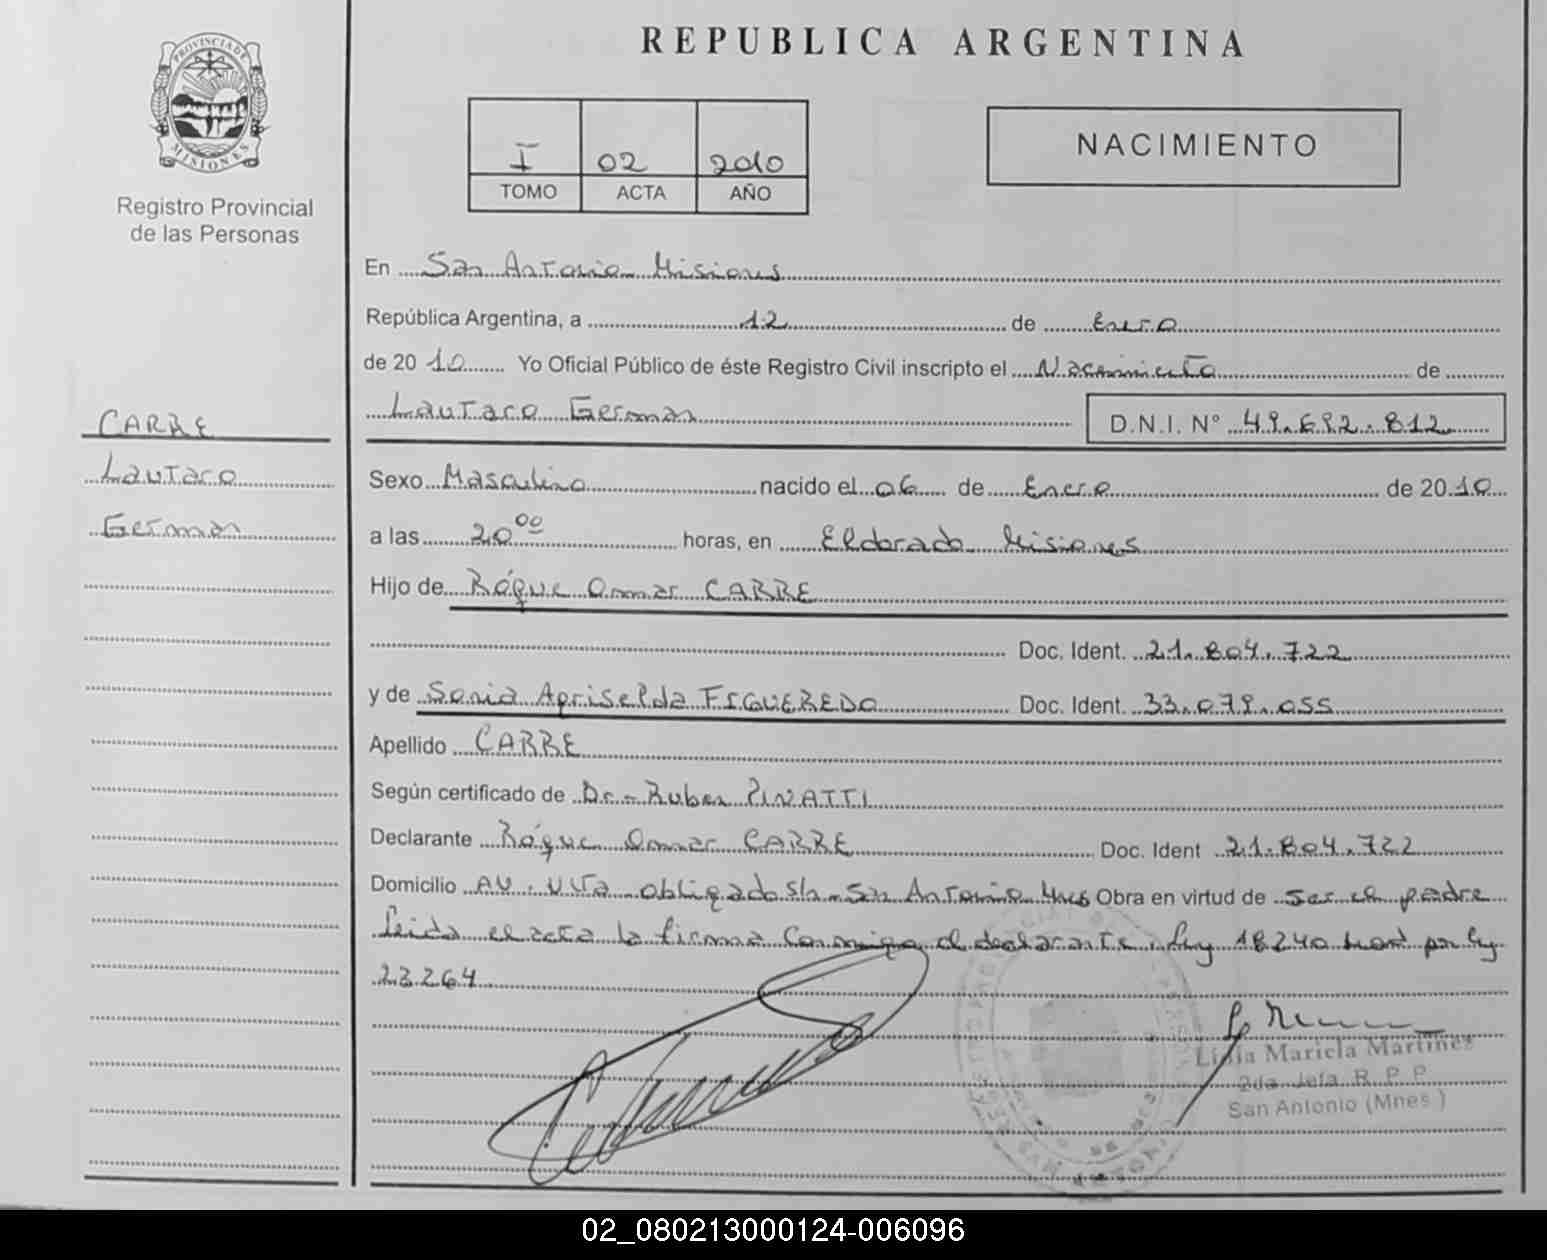 PROVINCIA DE
MISIONES
Registro Provincial
de las Personas
CARRE
Lautaro
German
REPUBLICA ARGENTINA
I 02 2010
TOMO ACTA AÑO
NACIMIENTO
En San Antonio Misiones
República Argentina, a 12 de Enero
de 2010 Yo Oficial Público de éste Registro Civil inscripto el Nacimiento de
Lautaro German D.N.I. N° 49.692.812
Sexo Masculino nacido el 06 de Enero de 2010
a las 20 00 horas, en Eldorado Misiones
Hijo de Róque Omar CARRE
Doc. Ident. 21.804.722
y de Sonia Agriselda FIGUEREDO Doc. Ident. 33.079.055
Apellido CARRE
Según certificado de Dr.- Ruben PINATTI
Declarante Róque Omar CARRE Doc. Ident 21.804.722
Domicilio AV. Ulta obligado s/n - San Antonio Mnes Obra en virtud de ser el padre
leida el acta la firma conmigo el declarante. Ley 18240 por ley
23264
Lidia Mariela Martinez
2da. Jefa R. P. P.
San Antonio (Mnes.)
02_080213000124-006096